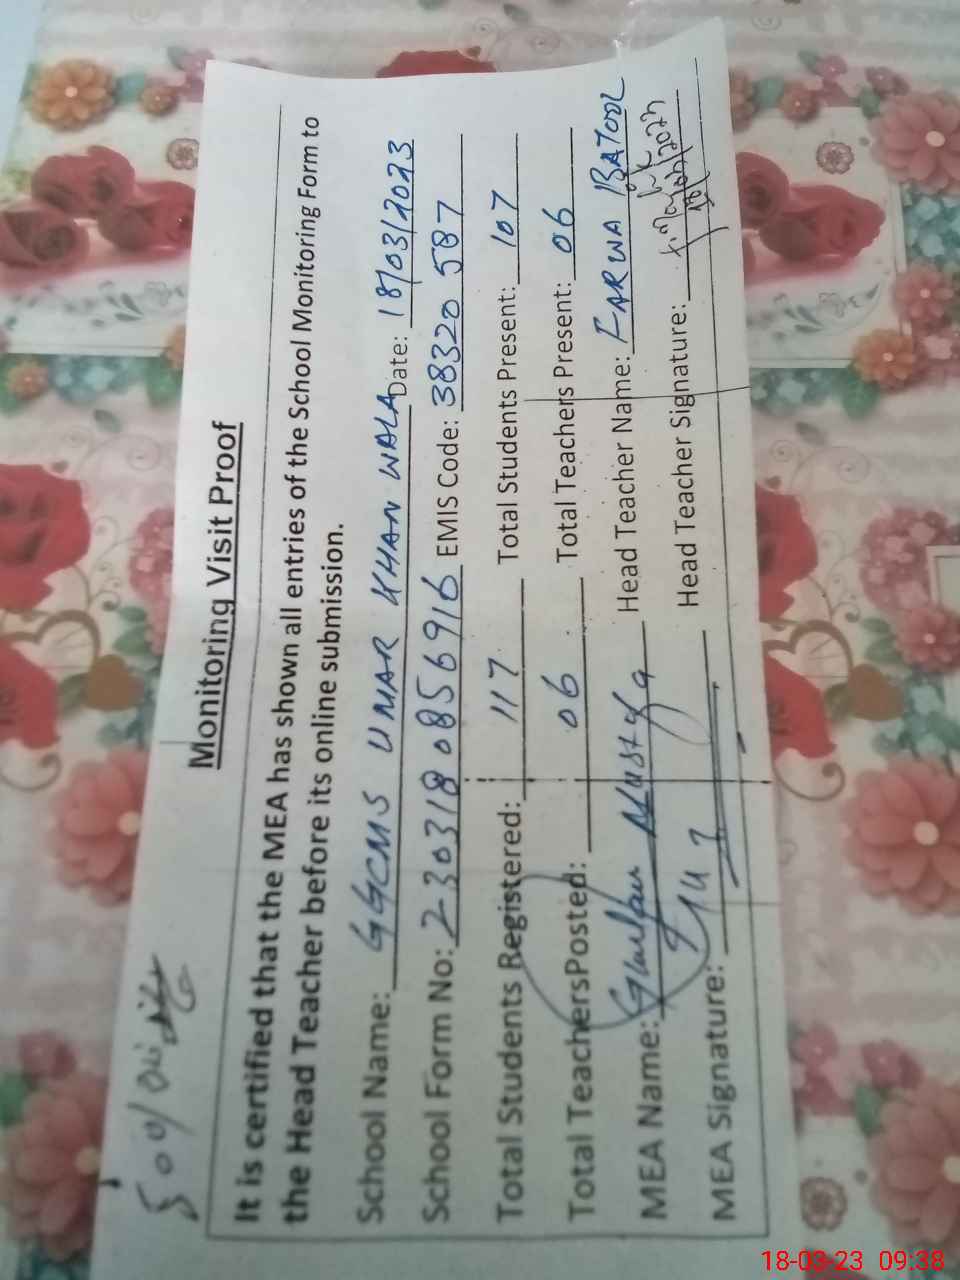 Monitoring Visit Proof
It is certified that the MEA has shown all entries of the School Monitoring Form to
the Head Teacher before its online submission.
School Name: GGCMS UMAR KHAN WALA Date: 18/03/2023
School Form No: 2303180856916 EMIS Code: 38320587
Total Students Registered: 117 Total Students Present: 107
Total TeachersPosted: 06 Total Teachers Present: 06
MEA Name: Ghulam Mustafa Head Teacher Name: FARWA BATOOL
MEA Signature: Head Teacher Signature:
18-03-23 09:38